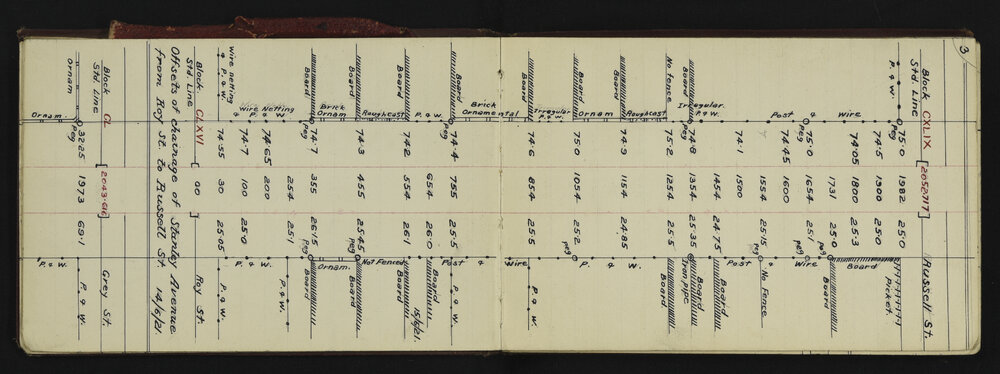 3
Block CXLIX [2052.717] Russell St.
Std. Line
P. & W. Peg 75.0 1982 25.0 Picket
74.5 1900 25.0
74.05 1800 25.3
Wire 1731 25.0 peg Board
Peg 75.0 1654 25.1 peg Wire
& 74.45 1600
Post 1554 25.15 peg No Fence
74.1 1500 Post &
1454 24.75 Board
Irregular P. & W.
Board Peg 74.8 1354 25.35 Iron pipe Board
No fence 75.2 1254 25.5 Board
Board Roughcast 74.9 1154 24.85 P. & W.
Ornam
Board 75.0 1054 25.2 peg
Irregular P. & W.
Board 74.6 854 25.5 Wire P. & W.
Brick Ornamental
Board Peg 74.4 755 25.5 Post & P. & W.
P. & W. 654 26.0 Board 15/6/21.
Board 74.2 554 26.1 Board
Roughcast Not Fenced
Board 74.3 455 25.45 Peg Board
Brick Ornam Ornam.
Board Peg 74.7 355 26.15 Peg Board
254 25.1 P. & W.
74.65 200
Wire Netting & P. & W.
74.7 100 25.0 P. & W.
Wire netting & P. & W. 74.55 30 25.05 P. & W.
Block CLXVI [ 00 ] Roy St.
Std. Line
Offsets of chainage of Stanley Avenue
from Roy St. to Russell St. 14/6/21.
Block CL [2043.616] Grey St.
Std. Line
Ornam Peg 32.25 1973 69.1 P. & W.
Ornam. P. & W.